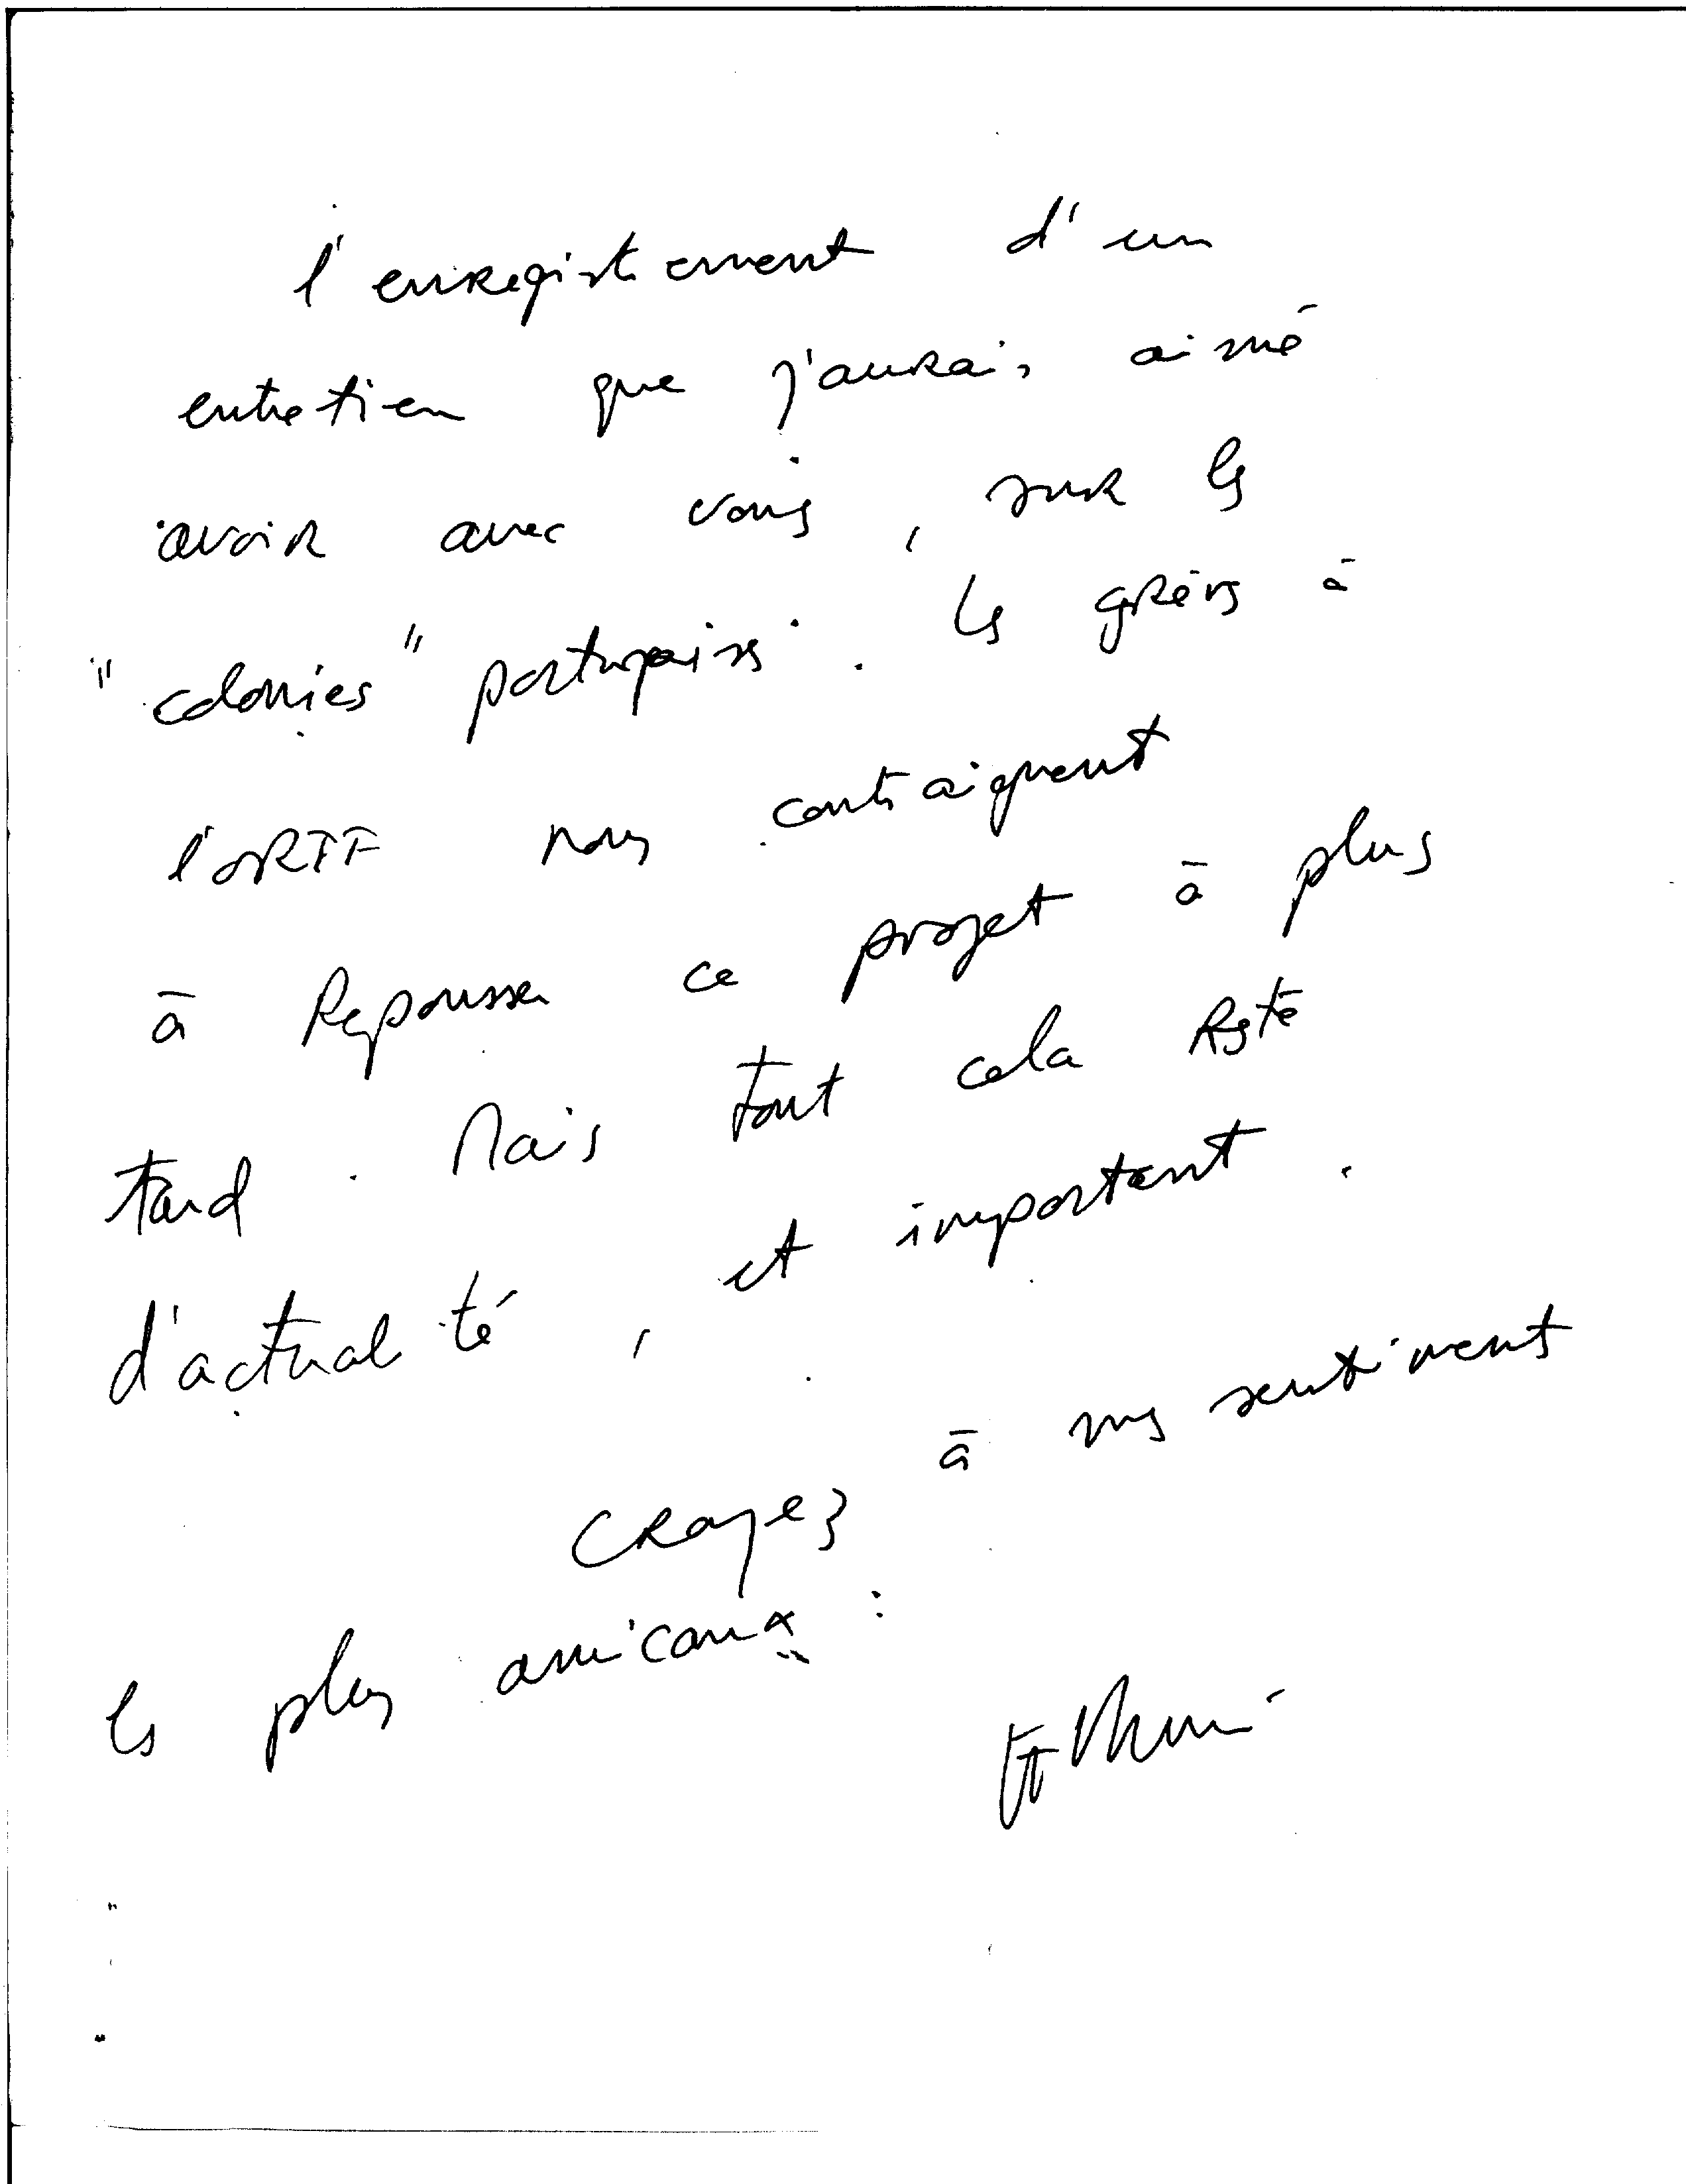 l'enregistrement d'un
entretien que j'aurais aimé
avoir avec vous, sur les
"colonies" portugaises. Les grèves à
l'ORTF nous contraignent
à repousser ce projet à plus
tard. Mais tout cela reste
d'actualité, et important.
Croyez à mes sentiments
les plus amicaux.